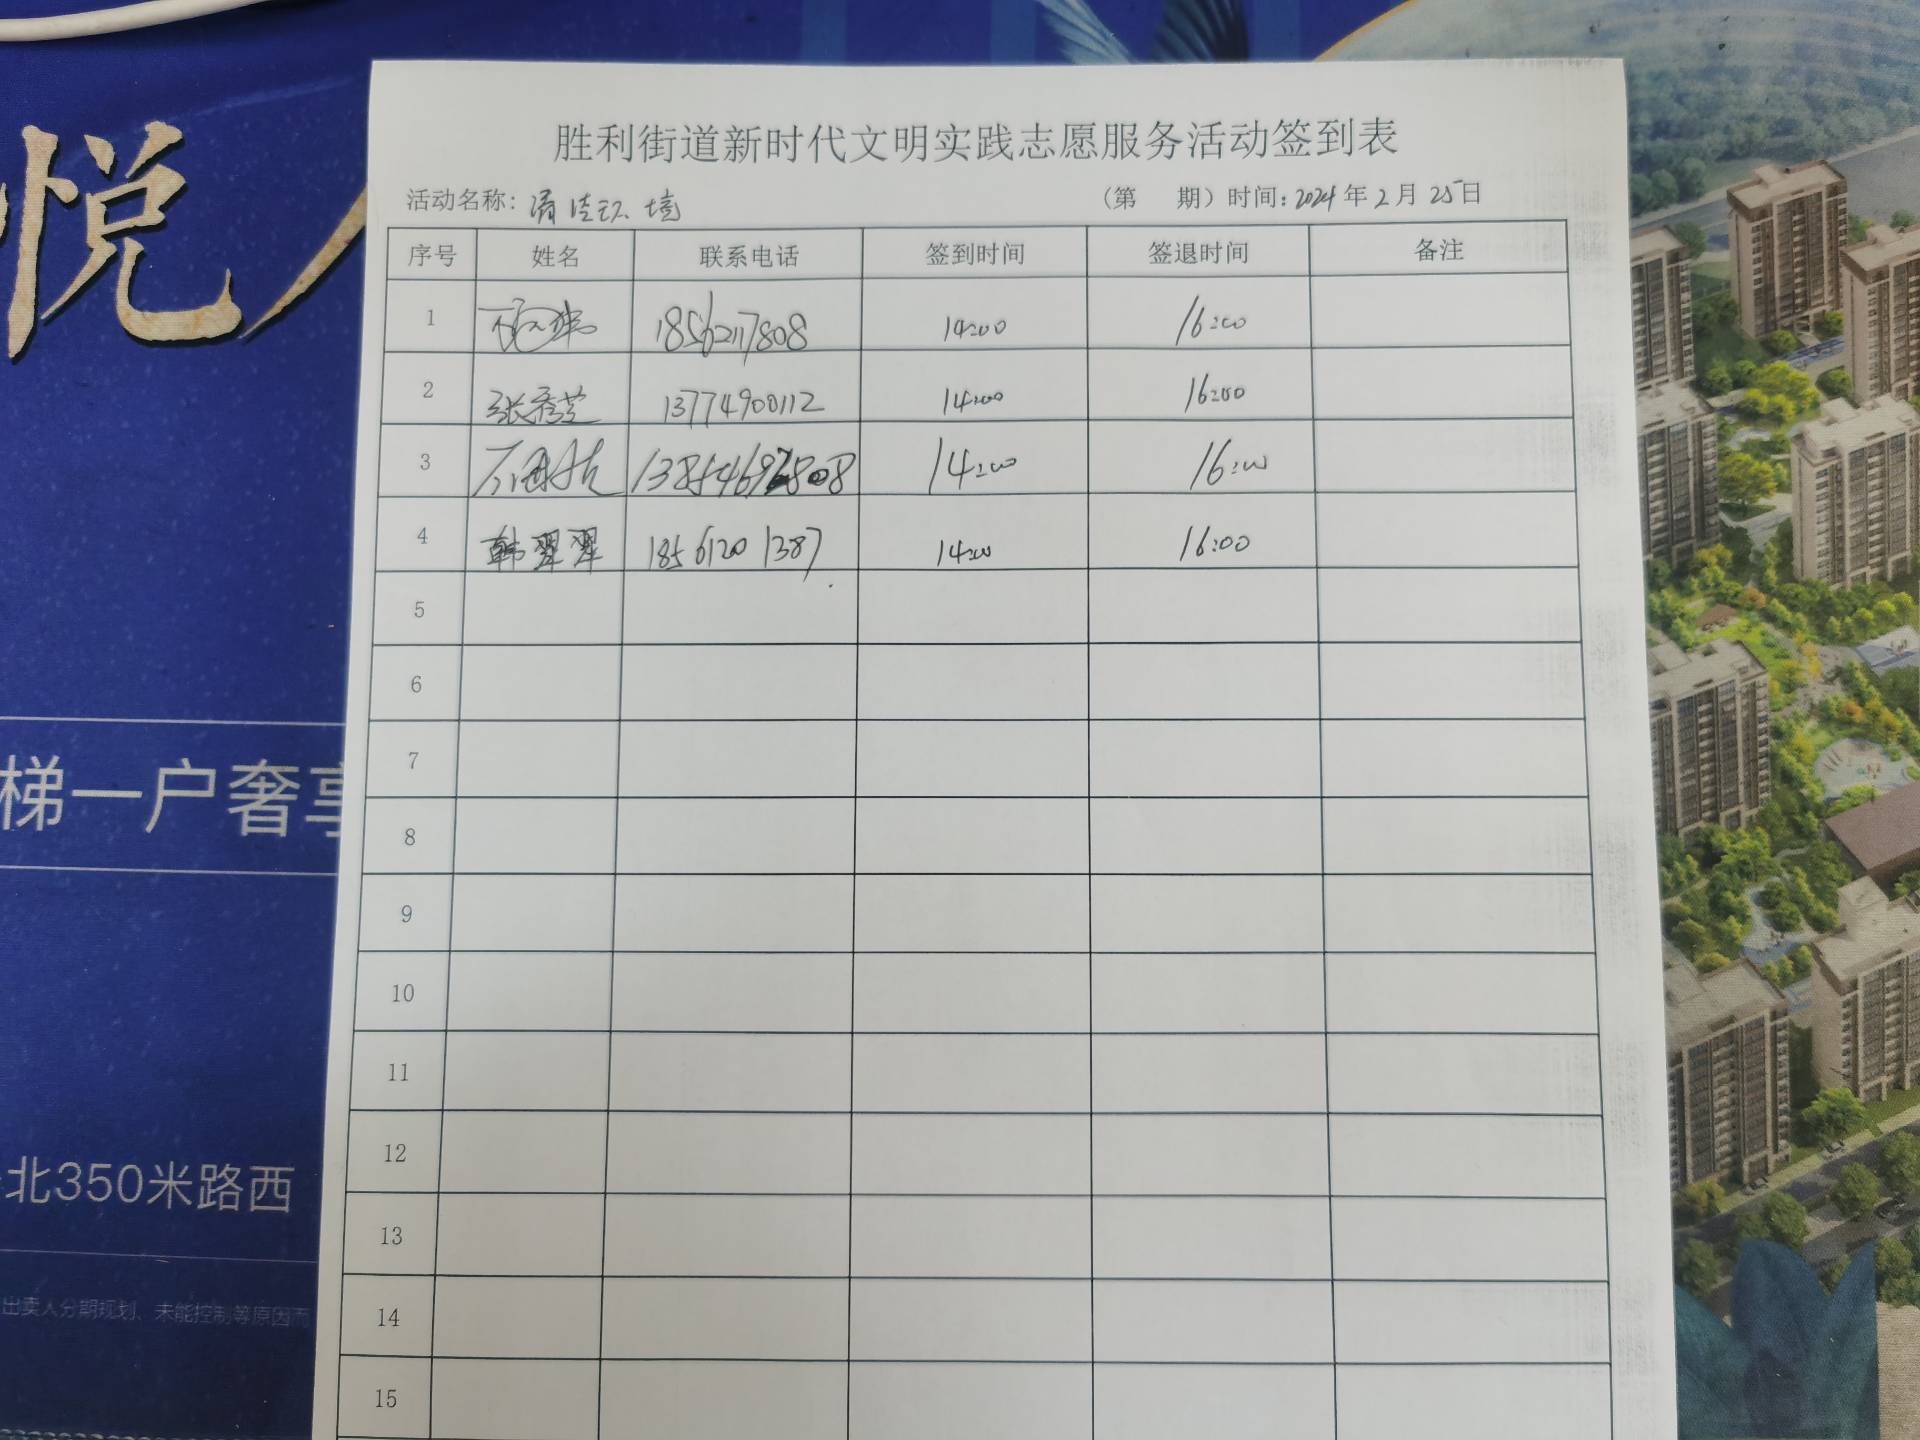 悦
胜利街道新时代文明实践志愿服务活动签到表
活动名称：清洁环境 （第 期）时间：2024年2月25日
序号 姓名 联系电话 签到时间 签退时间 备注
1 18562117808 14:00 16:00
2 张秀芝 13774900112 14:00 16:00
3 14:00 16:00
4 韩翠翠 18561201387 14:00 16:00
5
6
7
8
9
10
11
12
13
14
15
梯一户奢享
北350米路西
出卖人分期规划、未能控制等原因而